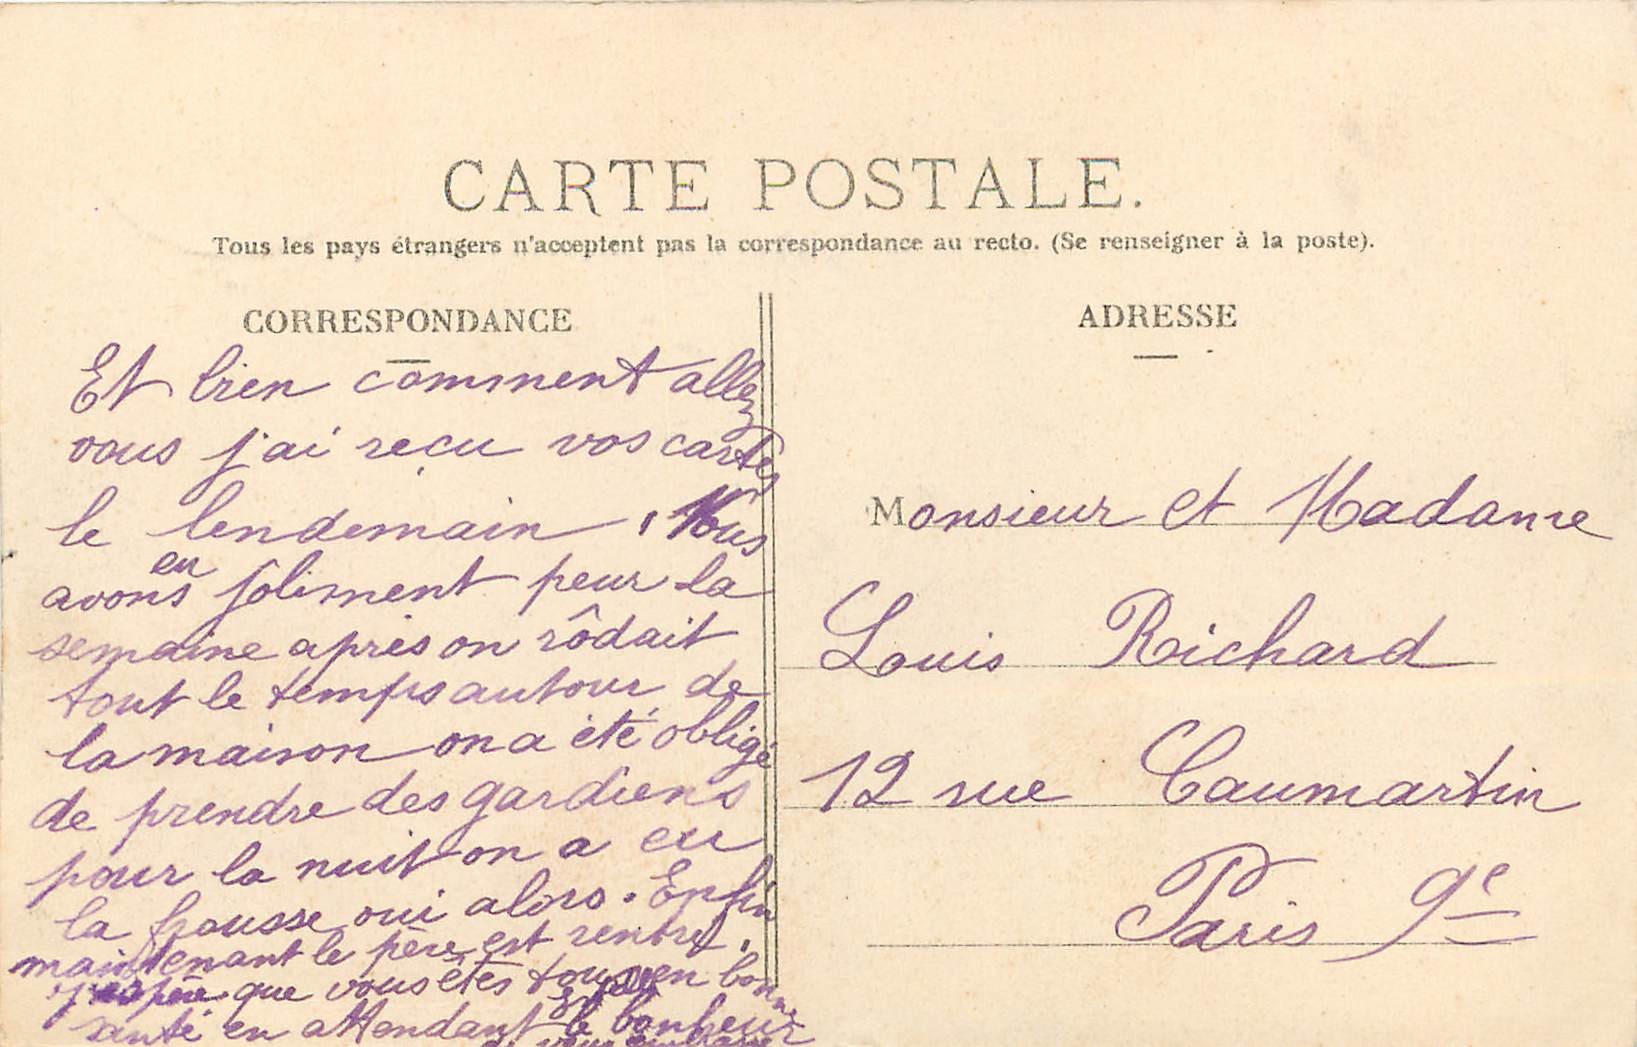 CARTE POSTALE.
Tous les pays étrangers n'acceptent pas la correspondance au recto. (Se renseigner à la poste).
CORRESPONDANCE
Et bien comment allez
vous j'ai reçu vos cartes
le lendemain, Nous
avons eu joliment peur la
semaine après on rôdait
tout le temps autour de
la maison on a été obligé
de prendre des gardiens
pour la nuit on a eu
la frousse oui alors. Enfin
maintenant le père est rentré,
j'espère que vous êtes tous en bonne
santé en attendant le bonheur
de vous embrasser
ADRESSE
Monsieur et Madame
Louis Richard
12 rue Caumartin
Paris 9e